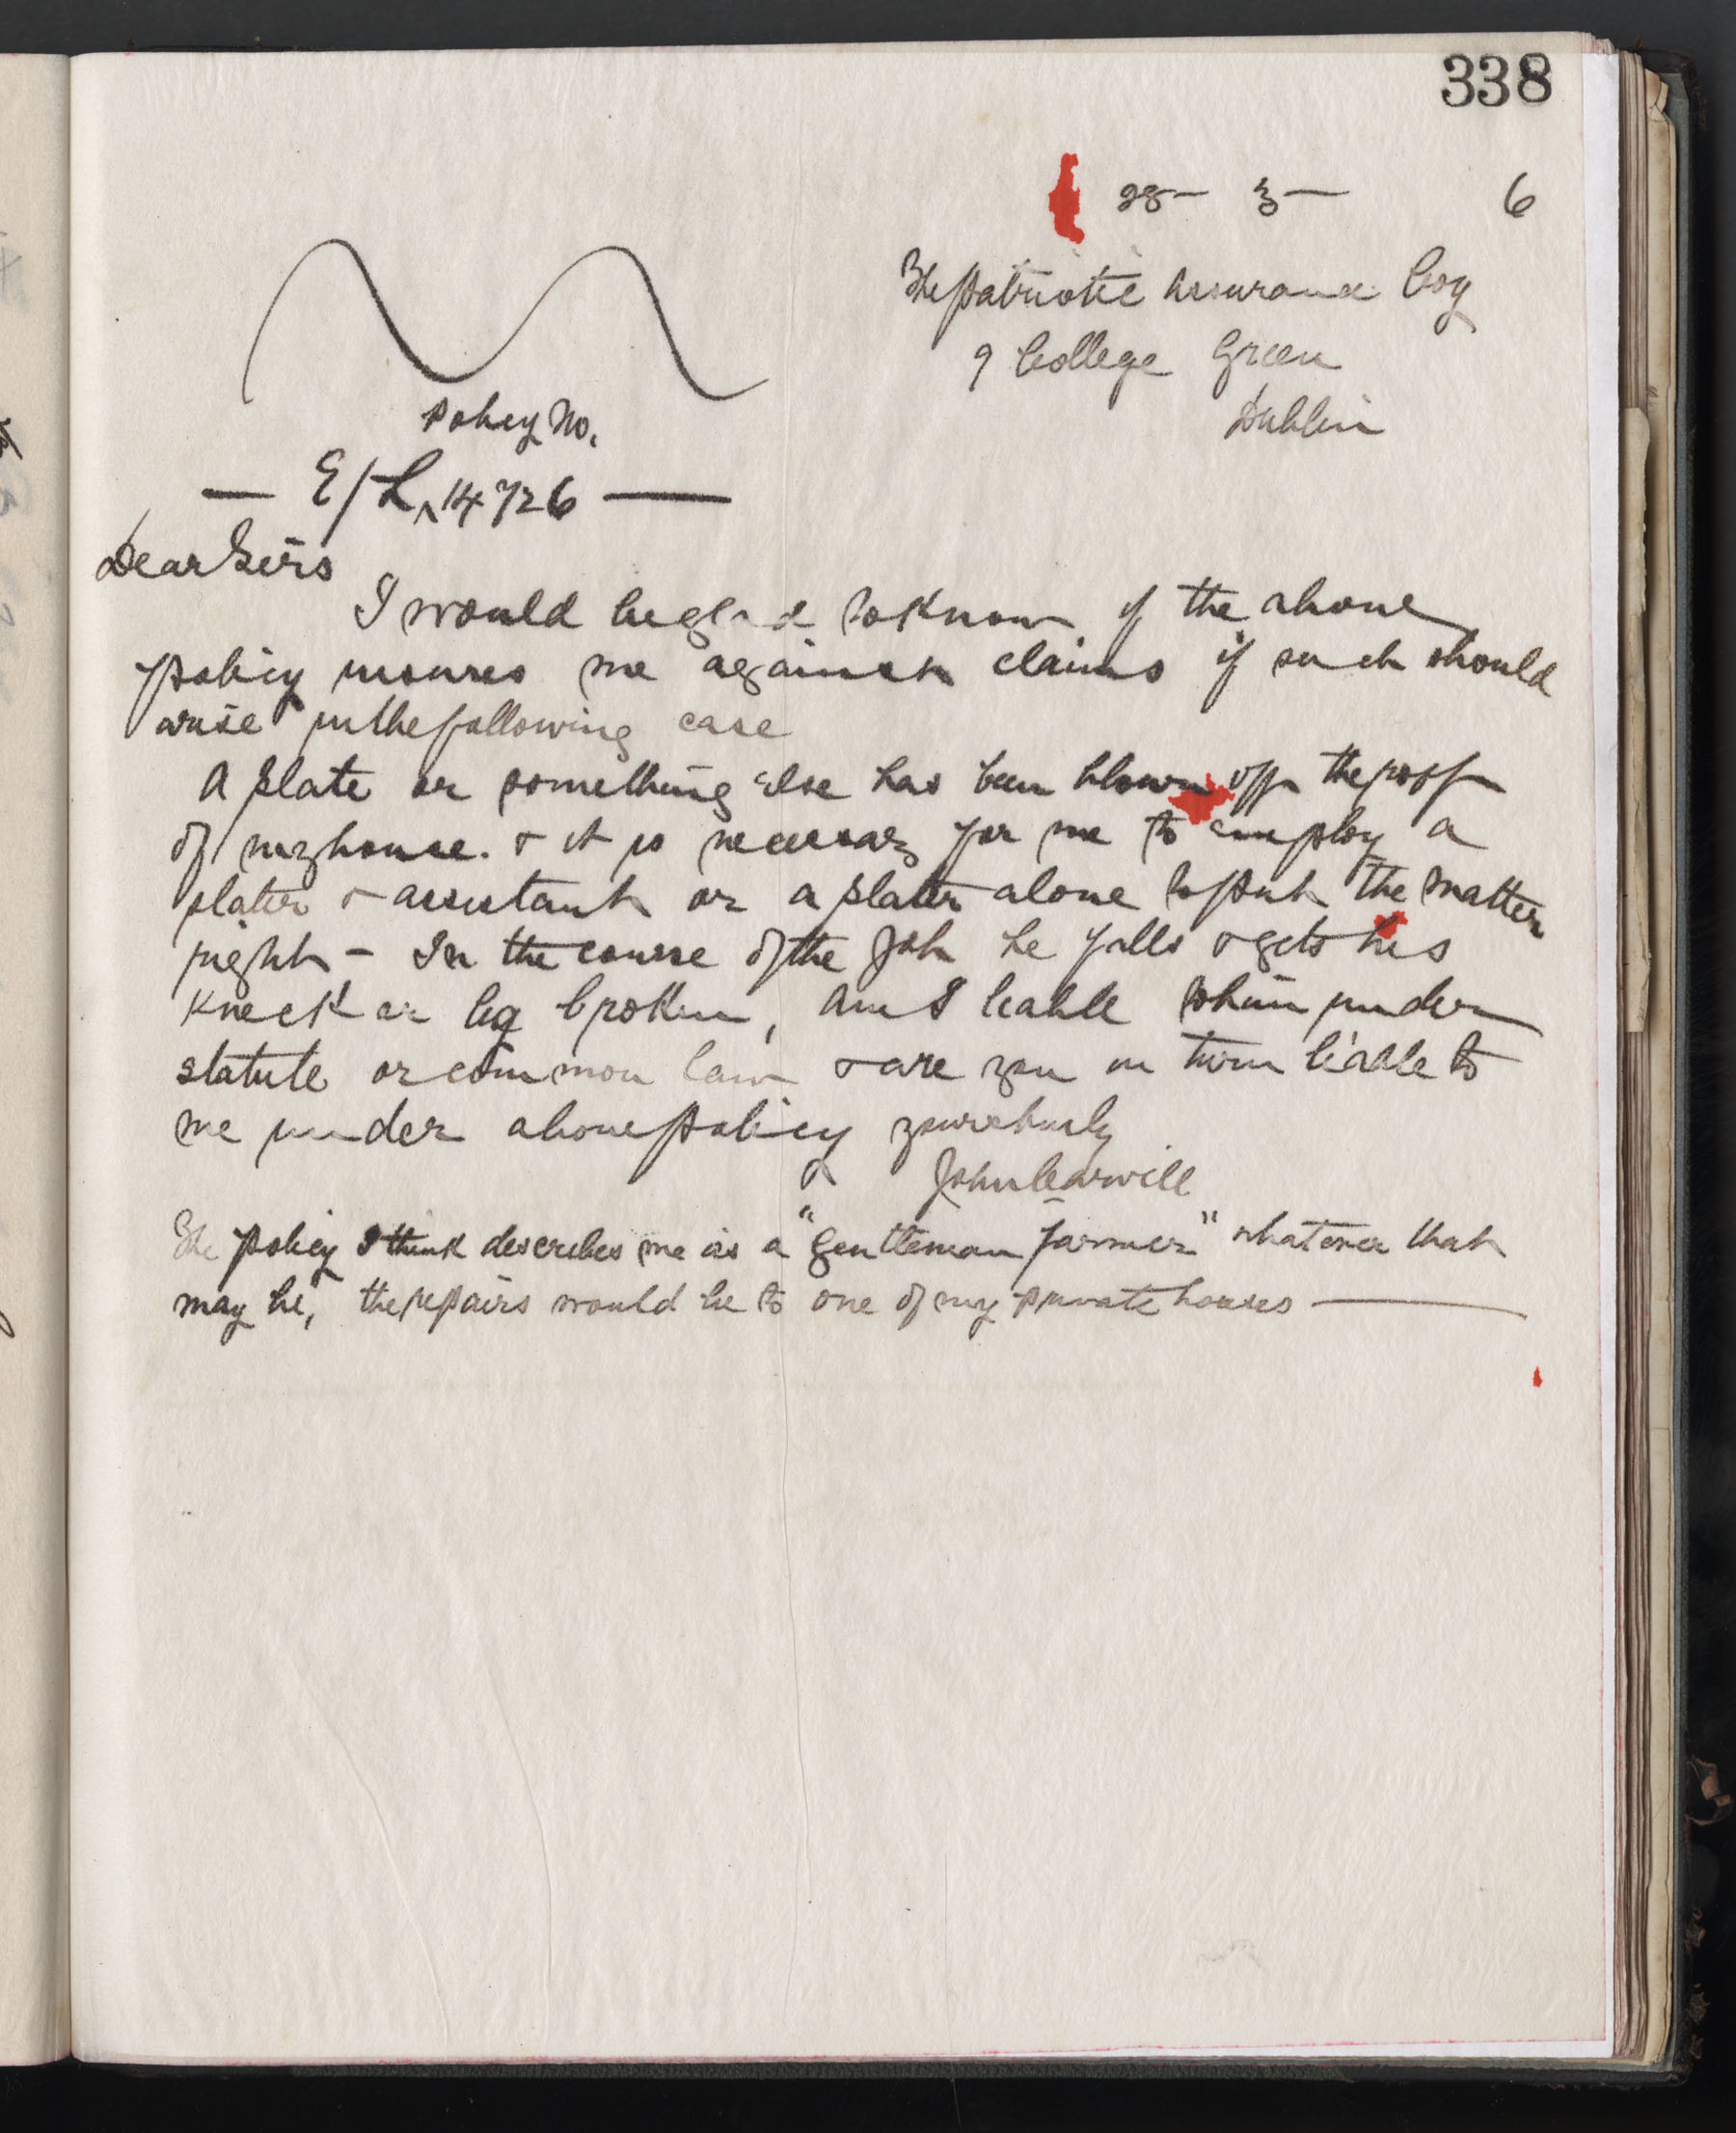 338
28 - 3 - 6
The Patriotic Assurance Coy
9 College Green
Dublin
Policy No.
— E/L ^ 14726 —
Dear Sirs
I would be glad to know if the above
policy insures me against claims if such should
arise in the following case
A slate or something else has been blown off the roof
of my house. & it is necessary for me to employ a
slater & assistant or a slater alone to put the matter
right - In the course of the job he falls & gets his
kneck or leg broken, am I liable to him under
statute or common law & are you in turn liable to
me under above policy yours truly
John
The policy I think describes me as a "gentleman farmer" whatever that
may be, the repairs would be to one of my private houses —